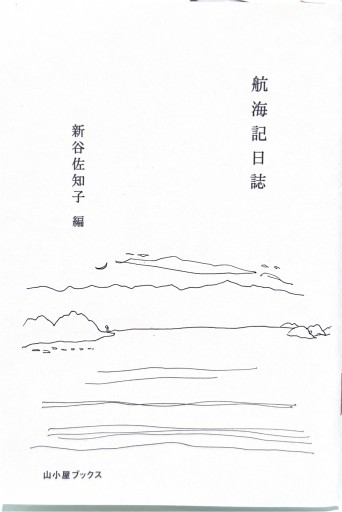 航海記日誌
新谷佐知子 編
山小屋ブックス